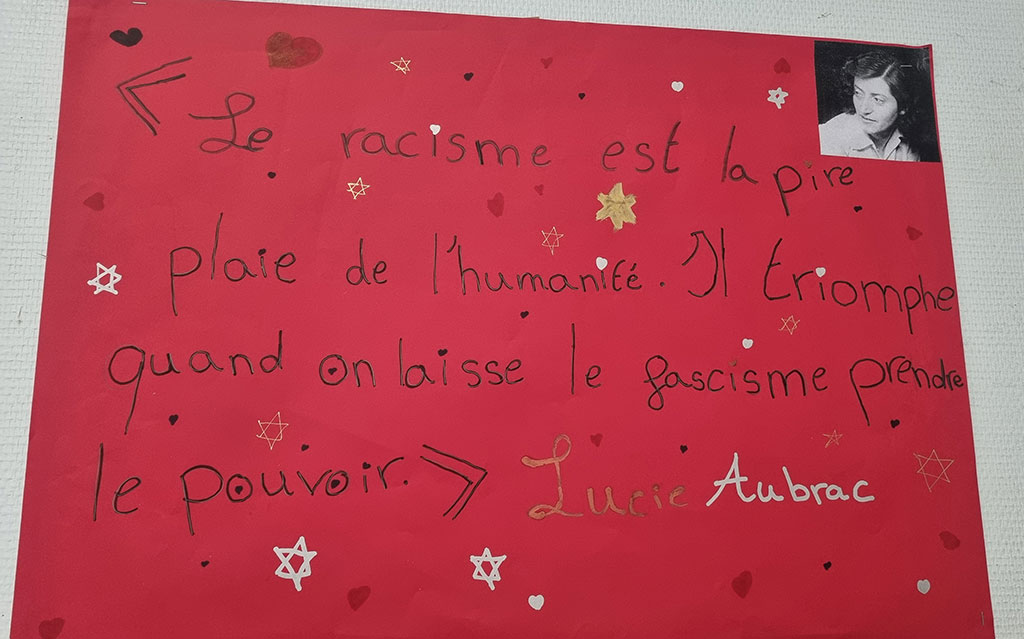 « Le racisme est la pire
plaie de l'humanité. Il triomphe
quand on laisse le fascisme prendre
le pouvoir. » Lucie Aubrac